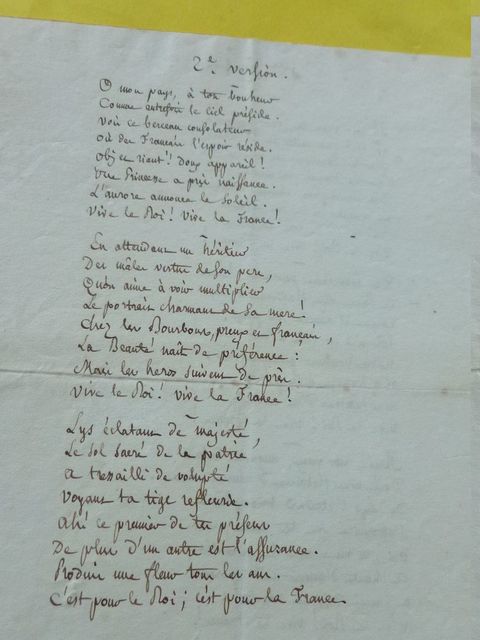 2e. version.
O mon pays, à ton bonheur
Comme autrefois le ciel préside.
Vois ce berceau consolateur
Où des Français l'espoir réside.
Objet riant! Doux appareil!
Une Princesse a pris naissance.
L'aurore annonce le Soleil.
Vive le Roi! Vive la France!
En attendant un héritier
Des mâles vertus de son pere,
Qu'on aime à voir multiplier
Le portrait charmant de Sa mere!
Chez les Bourbons, preux et français,
La Beauté naît de préférence:
Mais les heros suivent de près.
Vive le Roi! vive la France!
Lys éclatant de majesté,
Le sol sacré de la patrie
a tressailli de volupté
Voyant ta tige refleurie.
Ah! ce premier de tes présens
De plus d'un autre est l'assurance.
Produis une fleur tous les ans.
C'est pour le Roi; c'est pour la France.